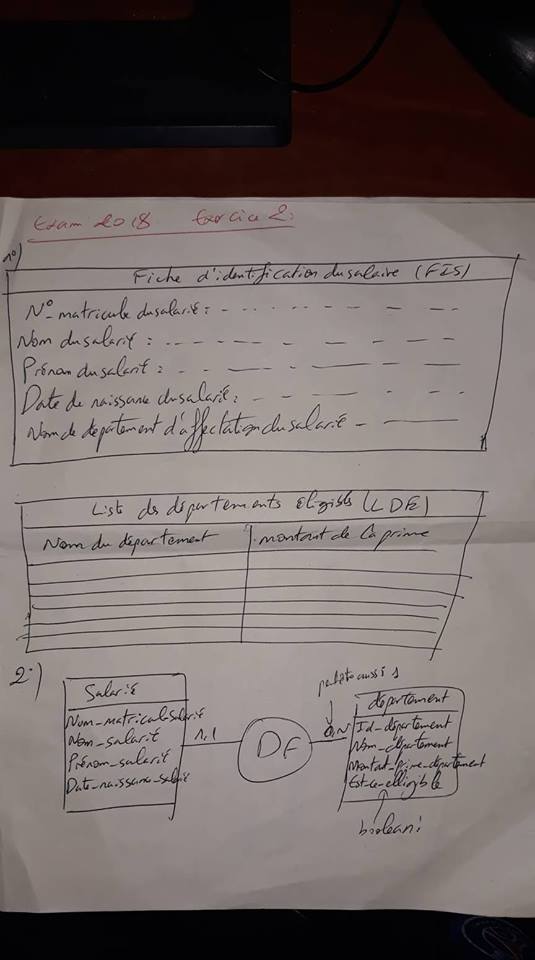 Exam 2018 Exercice 2:
1°)
Fiche d'identification du salaire (FIS)
N° matricule du salarié :
Nom du salarié :
Prénom du salarié :
Date de naissance du salarié :
Nom de département d'affectation du salarié
Liste des départements éligibles (LDE)
Nom du département montant de la prime
2°)
Salarié
Num-matricul-salarié
Nom-salarié
Prénom-salarié
Date-naissance-salarié
1,1
DF
0,N
aussi 1
département
Id-département
Nom-département
Montat-prime-département
Est-ce-elligible
boolean